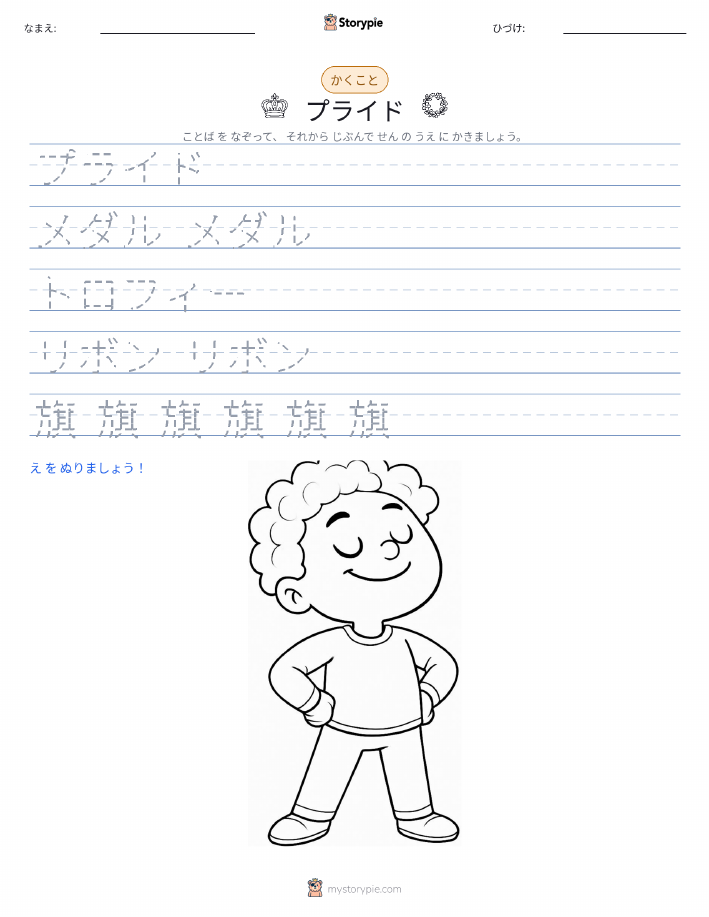 なまえ: Storypie ひづけ:
かくこと
プライド
ことば を なぞって、 それから じぶんで せん の うえ に かきましょう。
プライド
メダル メダル
トロフィー
リボン リボン
旗 旗 旗 旗 旗 旗
え を ぬりましょう！
mystorypie.com